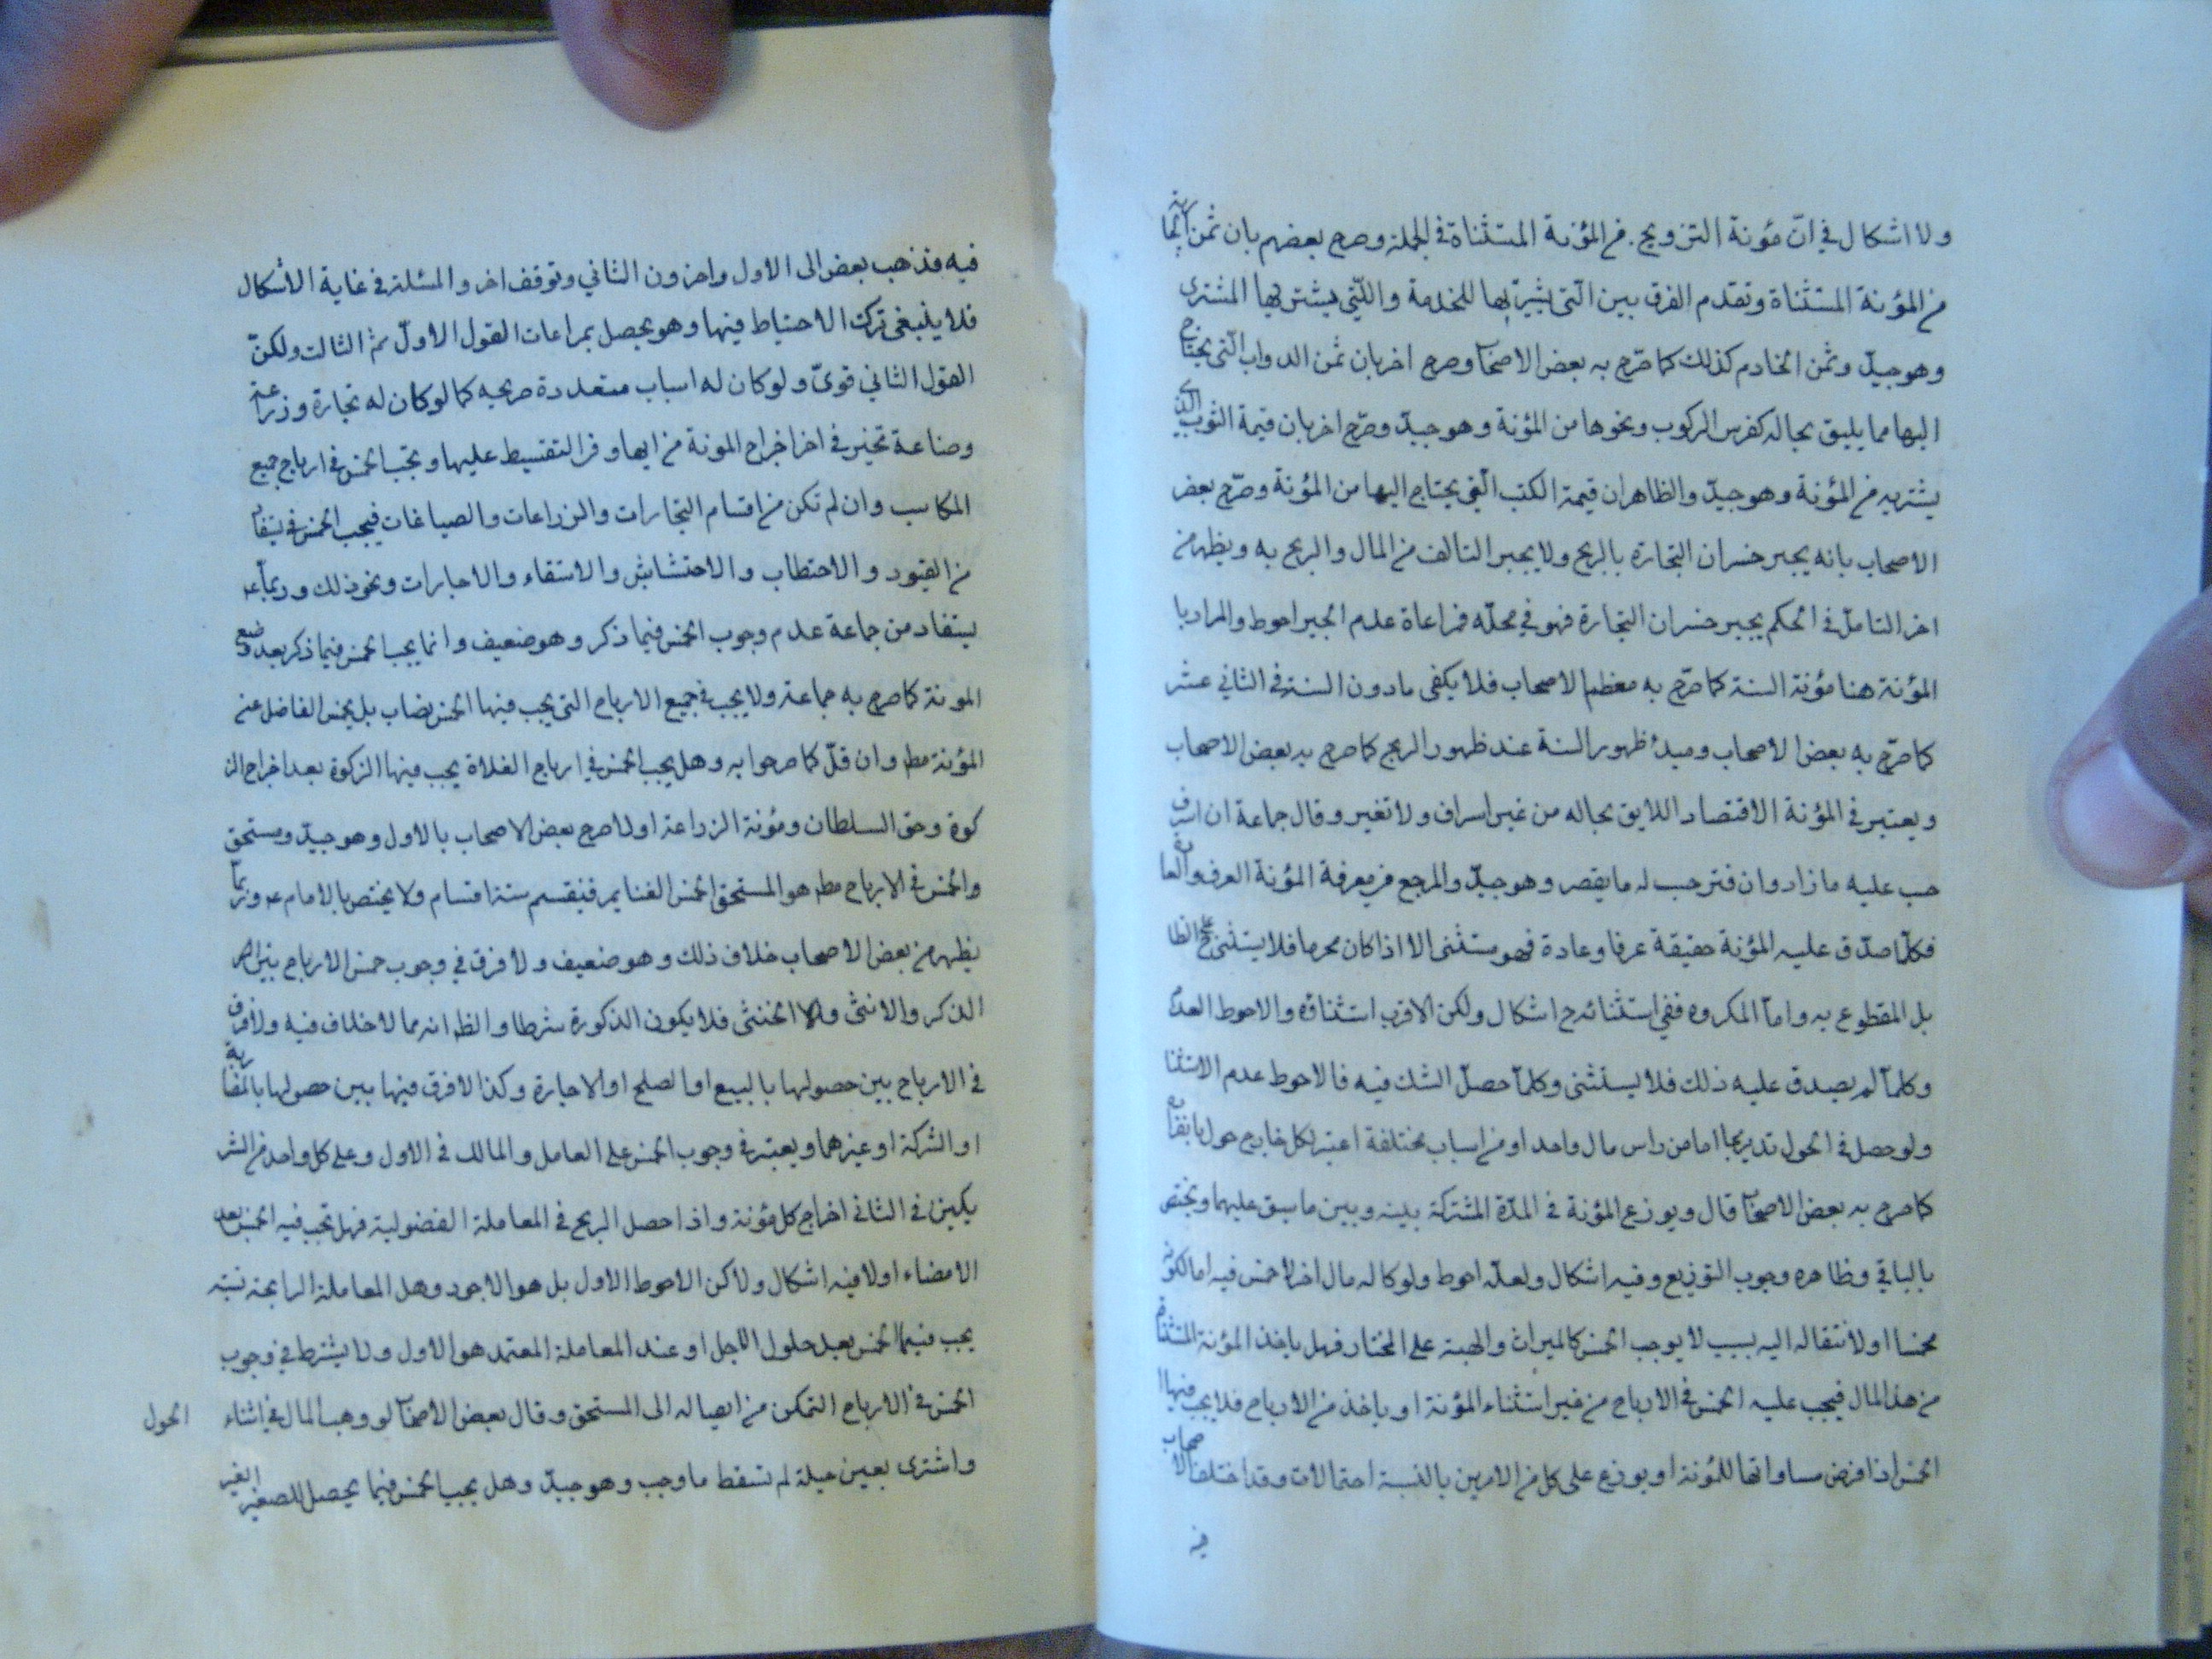 ولا اشكال في انّ مؤنة التزويج من المؤنة المستثناة في الجملة وصرح بعضهم بان ثمن
من المؤنة المستثناة وتقدم الفرق بين الّتى للخدمة والّتي يشتريها المشترى
وهو جيدّ وثمن الخادم كذلك كما صرّح به بعض الاصحاب وصرح اخر بان ثمن الدواب الّتى يحتاج
اليها مما يليق بحاله كفرس الركوب ونحوها من المؤنة وهو جيدّ وصرّح اخر بان قيمة الثوب الذى
يشتريه من المؤنة وهو جيدّ والظاهر ان قيمة الكتب الّتى يحتاج اليها من المؤنة وصرّح بعض
الاصحاب بانه يجبر خسران التجارة بالربح ولا يجبر التالف من المال والربح به ويظهر من
اخر التامل في الحكم بجبر خسران التجارة فهو في محلّه فمراعاة عدم الجبر احوط والمراد با
المؤنة هنا مؤنة السنة كما صرّح به معظم الاصحاب فلا يكفى مادون السنة في الثاني عشر
كما صرّح به بعض الاصحاب ومبدأ ظهور السنة عند ظهور الربح كما صرح به بعض الاصحاب
ويعتبر في المؤنة الاقتصاد اللايق بحاله من غير اسراف ولا تقتير وقال جماعة ان اسرف
حسب عليه ما زاد وان قتر حسب له ما يقصر وهو جيدّ والمرجع في معرفة المؤنة العرف والعادة
فكلّما صدّق عليه المؤنة حقيقة عرفا وعادة فهو مستثنى الا اذا كان محرما فلا يستثنى على الظا
بل المقطوع به وامّا المكروه ففى استثنائه ح اشكال ولكن الاقرب استثناؤه والاحوط العدم
وكلمّا لم يصدق عليه ذلك فلا يستثنى وكلمّا حصل الشك فيه فالاحوط عدم الاستثنا
ولو حصل في الحول تدريجا اما من راس مال واحد او من اسباب مختلفة اعتبر لكل خارج حول بانفراده
كما صرح به بعض الاصحاب قال ويوزع المؤنة في المدّة المشتركة بينه وبين ما سبق عليهما ويختص
بالباقي وظاهره وجوب التوزيع وفيه اشكال ولعلّه احوط ولو كا له مال اخر لا خمس فيه اما لكونه
مخمسا او لانتقاله اليه بسبب لا يوجب الخمس كالميراث والهبة على المختار فهل ياخذ المؤنة المستثناة
من هذا المال فيجب عليه الخمس في الارباح من غير استثناء المؤنة او ياخذ من الارباح فلا يجب فيها
الخمس اذا فرض مساواتها للمؤنة او يوزع على كل من الامرين بالنسبة احتمالات وقد اختلف الاصحاب
فيه
فيه فذهب بعض الى الاول واخرون الثاني وتوقف اخر والمسئلة في غاية الاشكال
فلا ينبغى ترك الاحتياط فيها وهو يحصل بمراعات القول الاولّ ثم الثالث ولكنّ
القول الثاني قوىّ ولو كان له اسباب متعددة مربحيه كما لو كان له تجارة وزراعة
وصناعة تخير في اخراج المونة من ايها و في التقسيط عليها ويجب الخمس في ارباح جميع
المكاسب وان لم تكن من اقسام التجارات والزراعات والصياغات فيجب الخمس في
من القيود والاحتطاب والاحتشاش والاستقاء والاجارات ونحو ذلك وربمّا
يستفاد من جماعة عدم وجوب الخمس فيما ذكر وهو ضعيف وانما يجب الخمس فيما ذكر بعد وضع
المونة كما صرح به جماعة ولا يجب في جميع الارباح التى يجب فيها الخمس نصاب بل يخمس الفاضل عن
المؤنة مطم وان قلّ كما صرحوا به وهل يجب الخمس في ارباح الغلاة يجب فيها الزكوة بعد اخراج الز
كوة وحق السلطان ومؤنة الزراعة او لا صرح بعض الاصحاب بالاول وهو جيدّ ومستحق
والخمس في الارباح مطم هو المستحق الخمس الغنايم فيقسم ستة اقسام ولا يختص بالامام ع وربّما
يظهر من بعض الاصحاب خلاف ذلك وهو ضعيف ولا فرق في وجوب خمس الارباح بين
الذكر والانثى والخنثى فلا يكون الذكورة شرطا والظ انه مما لا خلاف فيه ولا فرق
في الارباح بين حصولها بالبيع او الصلح او الاجارة وكذا لا فرق فيها بين حصولها بالمضاربة
او الشركة او غيرهما ويعتبر في وجوب الخمس على العامل والمالك في الاول وعلى كل واحد من الشر
يكين في الثاني اخراج كل مؤنة واذا حصل الربح في المعاملة الفضولية فهل تجب فيه الخمس بعد
الامضاء او لا فيه اشكال ولاكن الاحوط الاول بل هو الاجود وهل المعاملة الرابحة نسية
يجب فيها الخمس بعد حلول الاجل او عند المعاملة المعتمد هو الاول ولا يشترط في وجوب
الخمس في الارباح التمكن من ايصاله الى المستحق وقال بعض الاصحاب لو وهب المال في اثناء الحول
واشترى بعين حيلة لم تسقط ما وجب وهو جيدّ وهل يجب الخمس فيما يحصل للصغير الغير